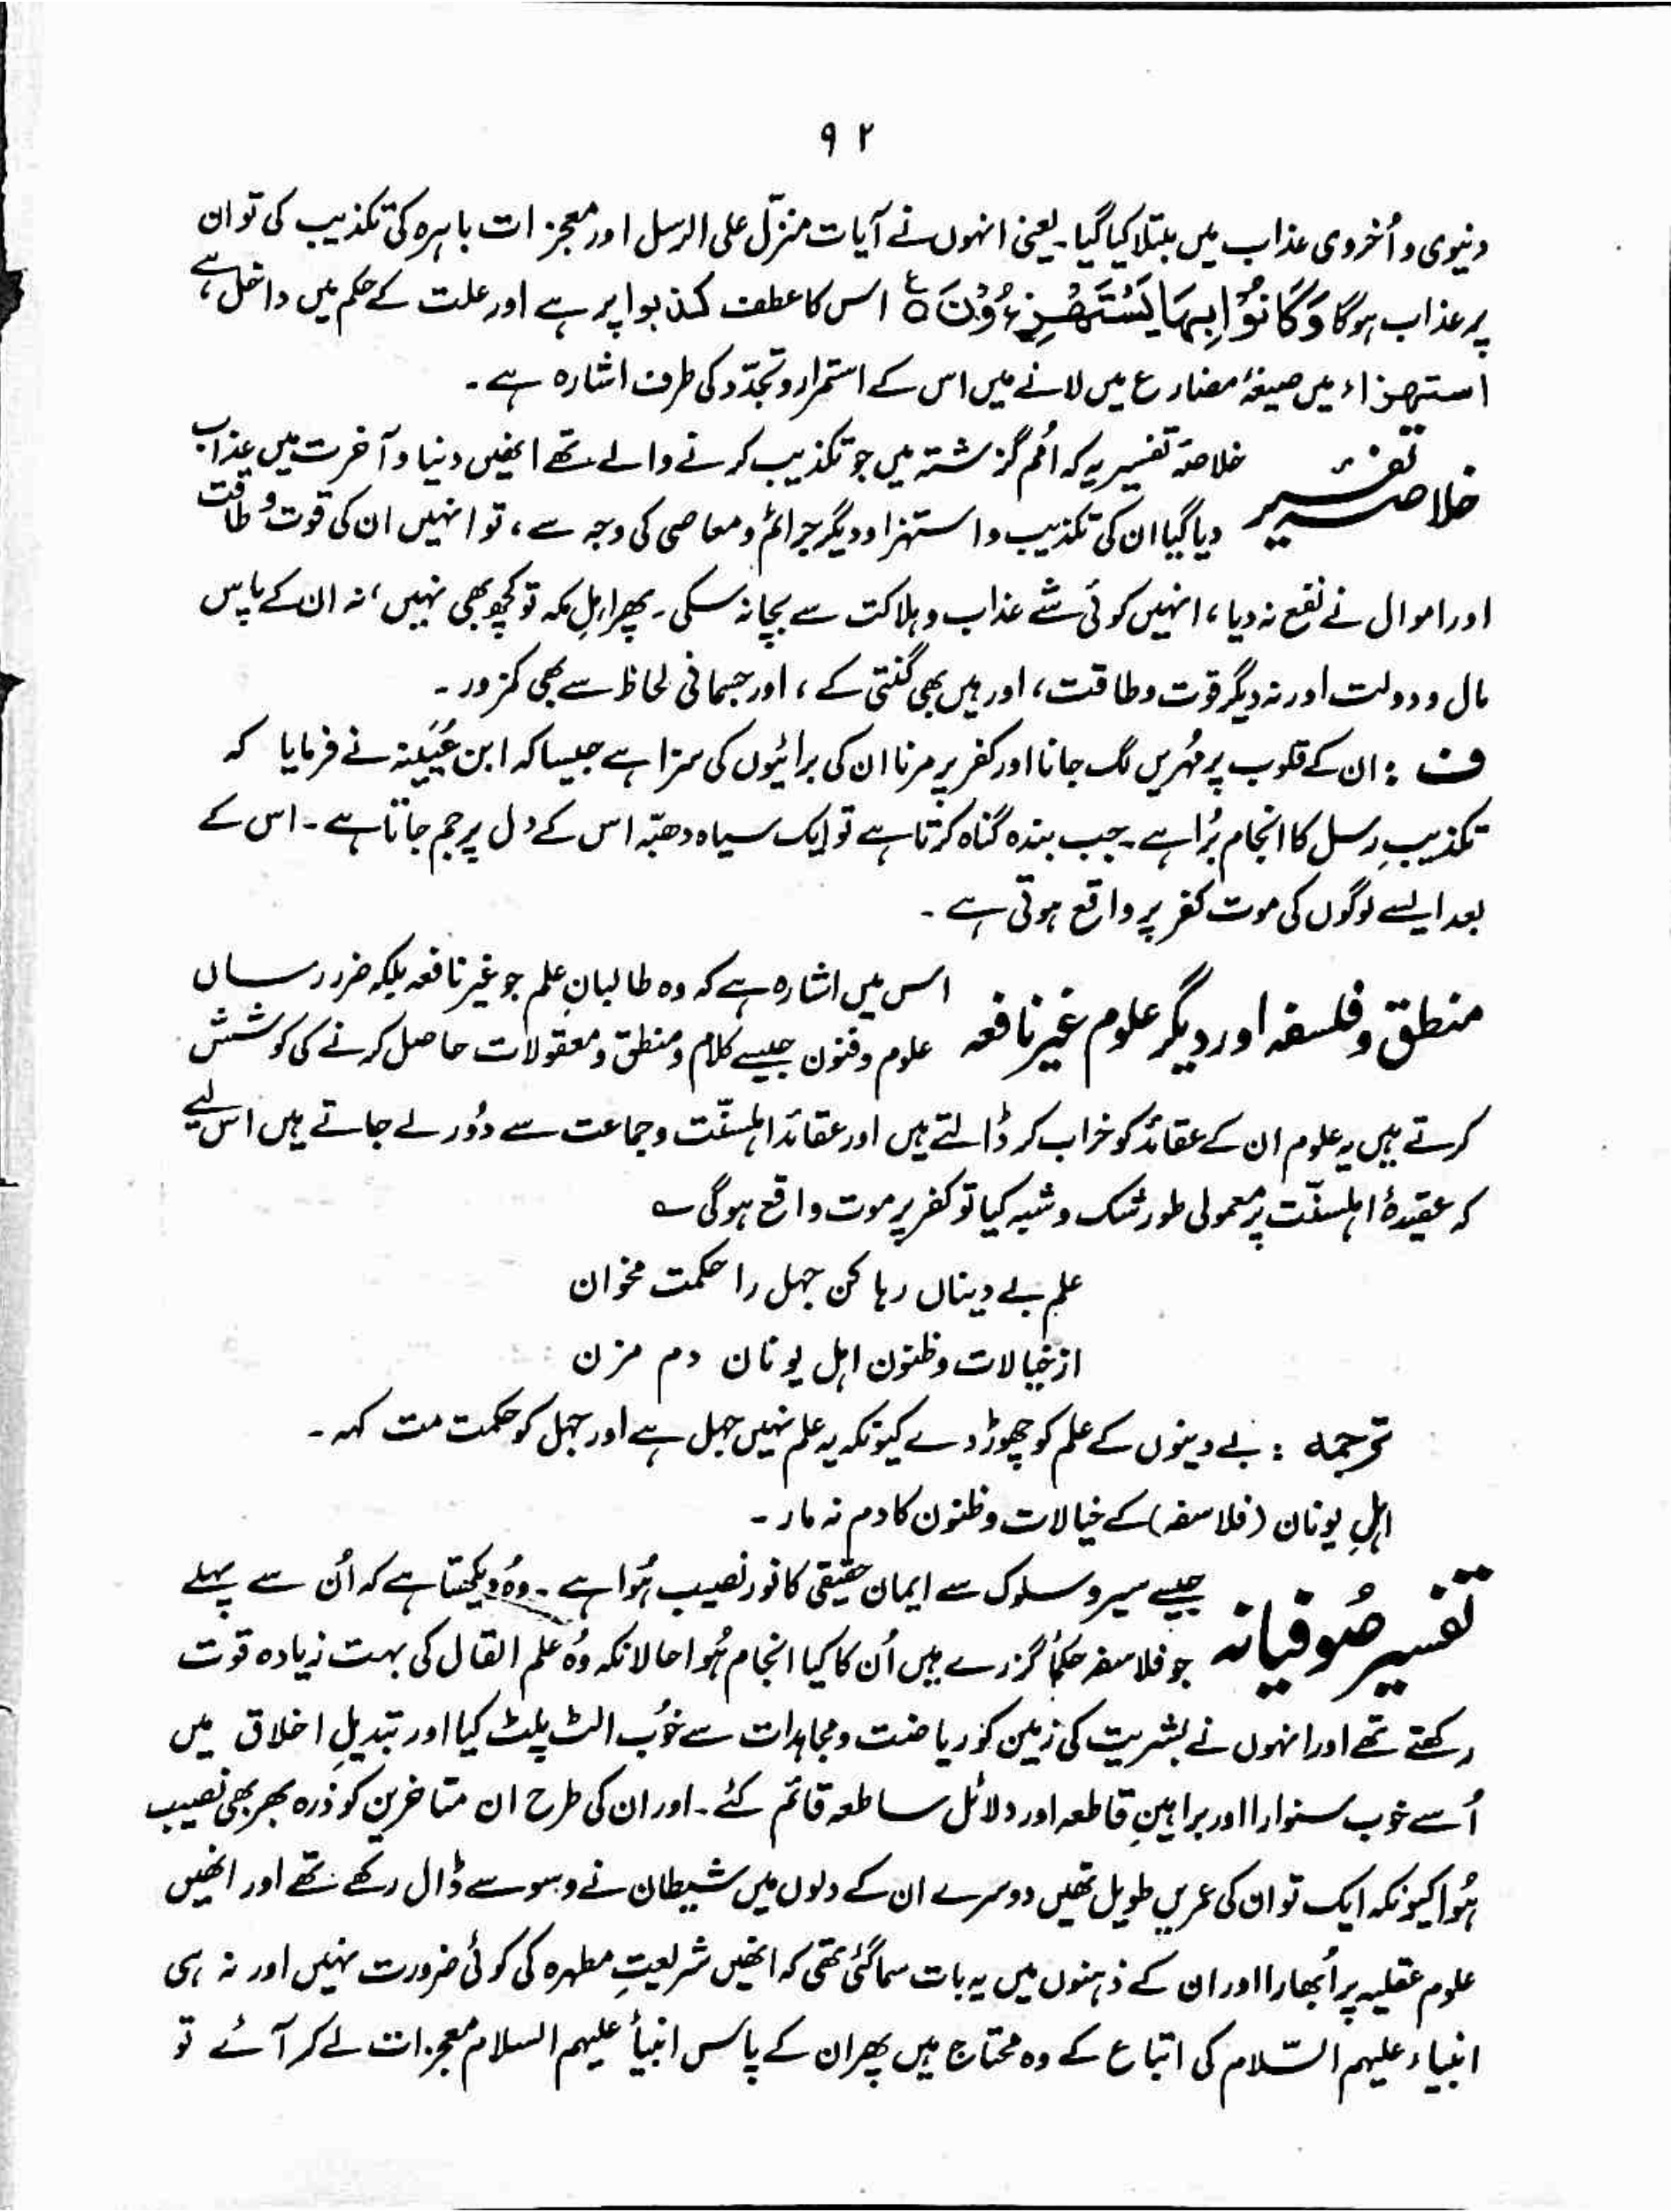 ۹۲
دنیوی و اُخروی عذاب میں مبتلا کیا گیا۔ یعنی انہوں نے آیات منزّل علی الرسل اور معجزات باہرہ کی تکذیب کی تو ان
پر عذاب ہوگا وَكَانُوْا بِهَا يَسْتَهْزِءُوْنَ ۵ ع اس کا عطف کذبوا پر ہے اور علت کے حکم میں داخل ہے،
استہزاء میں صیغۂ مضارع میں لانے میں اس کے استمرار و تجدّد کی طرف اشارہ ہے۔
خلاصہ تفسیر
خلاصۂ تفسیر یہ کہ اُمم گزشتہ میں جو تکذیب کرنے والے تھے انھیں دنیا و آخرت میں عذاب
دیا گیا ان کی تکذیب و استہزا و دیگر جرائم و معاصی کی وجہ سے، تو انہیں ان کی قوت و طاقت
اور اموال نے نفع نہ دیا، انہیں کوئی شے عذاب و ہلاکت سے بچا نہ سکی۔ پھر اہلِ مکہ تو کچھ بھی نہیں، نہ ان کے پاس
مال و دولت اور نہ دیگر قوت و طاقت، اور ہیں بھی گنتی کے، اور جسمانی لحاظ سے بھی کمزور۔
ف : ان کے قلوب پر مُہریں لگ جانا اور کفر پر مرنا ان کی برائیوں کی سزا ہے جیسا کہ ابن عُیَینہ نے فرمایا کہ
تکذیبِ رسل کا انجام بُرا ہے۔ جب بندہ گناہ کرتا ہے تو ایک سیاہ دھبّہ اس کے دل پر جم جاتا ہے۔ اس کے
بعد ایسے لوگوں کی موت کفر پر واقع ہوتی ہے۔
منطق و فلسفہ اور دیگر علوم غیر نافعہ
اس میں اشارہ ہے کہ وہ طالبانِ علم جو غیر نافعہ بلکہ ضرر رساں
علوم و فنون جیسے کلام و منطق و معقولات حاصل کرنے کی کوشش
کرتے ہیں یہ علوم ان کے عقائد کو خراب کر ڈالتے ہیں اور عقائد اہلسنّت و جماعت سے دُور لے جاتے ہیں اس لیے
کہ عقیدۂ اہلسنّت پر معمولی طور شک و شبہ کیا تو کفر پر موت واقع ہوگی ؎
علم بے دیناں رہا کن جہل را حکمت مخوان
از خیالات و ظنون اہل یونان دم مزن
ترجمہ : بے دینوں کے علم کو چھوڑ دے کیونکہ یہ علم نہیں جہل ہے اور جہل کو حکمت مت کہہ۔
اہلِ یونان (فلاسفہ) کے خیالات و ظنون کا دم نہ مار۔
تفسیر صُوفیانہ
جیسے سیر و سلوک سے ایمان حقیقی کا نور نصیب ہُوا ہے۔ وہُ دیکھتا ہے کہ اُن سے پہلے
جو فلاسفہ حکمأ گزرے ہیں اُن کا کیا انجام ہُوا حالانکہ وہُ علم القال کی بہت زیادہ قوت
رکھتے تھے اور انہوں نے بشریت کی زمین کو ریاضت و مجاہدات سے خوُب الٹ پلٹ کیا اور تبدیلِ اخلاق میں
اُسے خوب سنوارا اور براہینِ قاطعہ اور دلائل ساطعہ قائم کئے۔ اور ان کی طرح ان متاخرین کو ذرہ بھر بھی نصیب
ہُوا کیونکہ ایک تو ان کی عمریں طویل تھیں دوسرے ان کے دلوں میں شیطان نے وسوسے ڈال رکھے تھے اور انھیں
علوم عقلیہ پر اُبھارا اور ان کے ذہنوں میں یہ بات سما گئی تھی کہ انھیں شریعتِ مطہرہ کی کوئی ضرورت نہیں اور نہ ہی
انبیاء علیہم السّلام کی اتباع کے وہ محتاج ہیں پھر ان کے پاس انبیأ علیہم السلام معجزات لے کر آئے تو